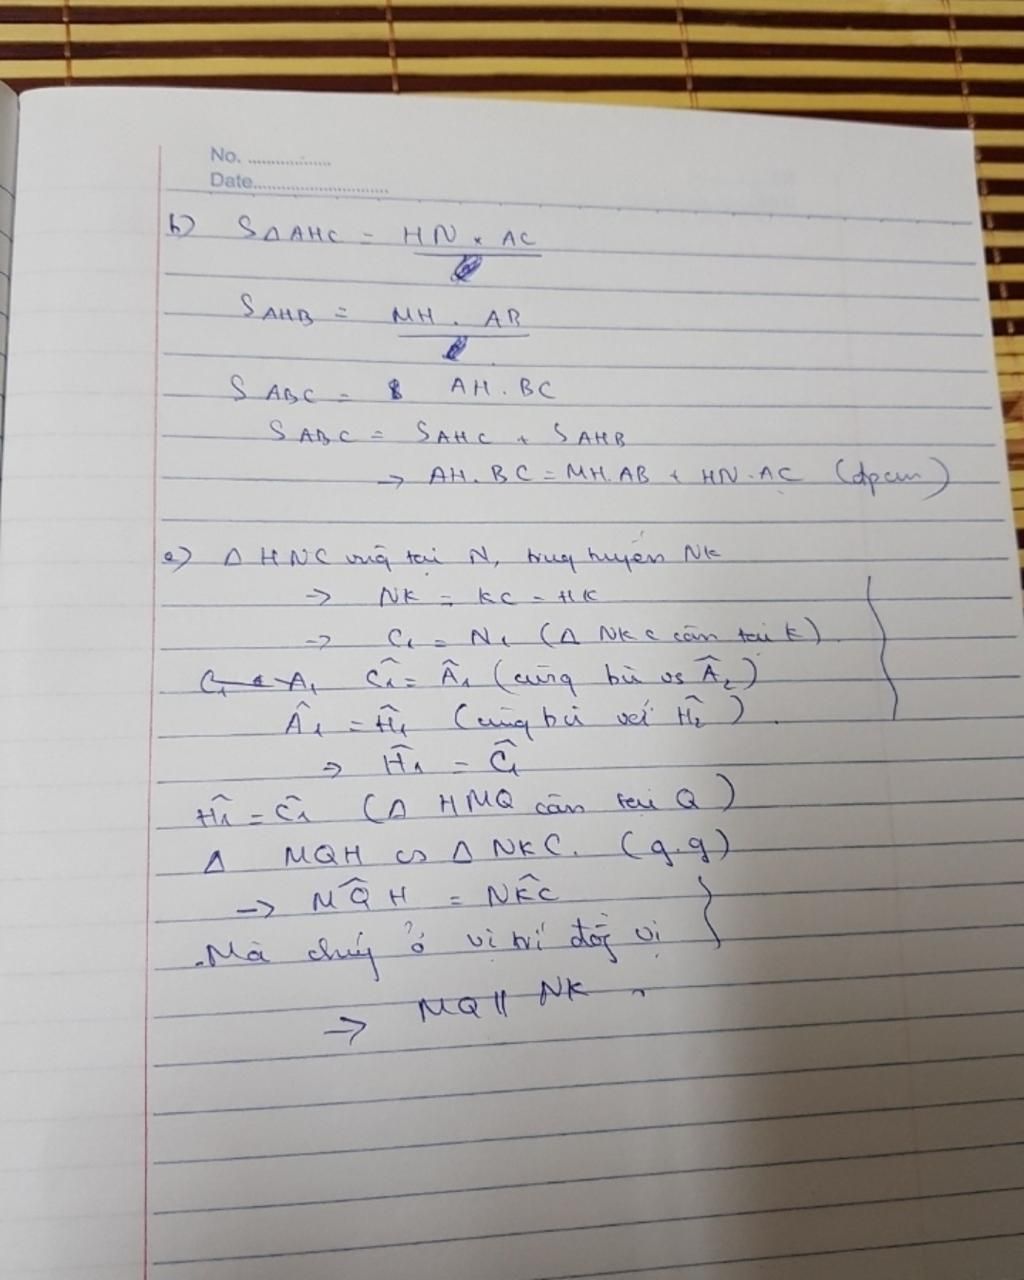 No. ..................
Date..............................
b) S△AHC = HN x AC
S AHB = MH . AB
S ABC = AH . BC
S ABC = S AHC + S AHB
→ AH . BC = MH . AB + HN . AC (đpcm)
△ HNC tại N, trung tuyến NK
→ NK = KC = HK
→ C₁ = N₁ (△ NKC cân tại K)
Ĉ₁ = Â₁ (cùng bù vs Â₂)
Â₁ = Ĥ₁ (cùng bù với Ĥ₂)
→ Ĥ₁ = Ĉ₁
Ĥ₁ = Ĉ₁ (△ HMQ cân tại Q)
△ MQH ∽ △ NKC. (g.g)
→ MQ̂H = NK̂C
Mà chúng ở vị trí đồng vị
→ MQ // NK